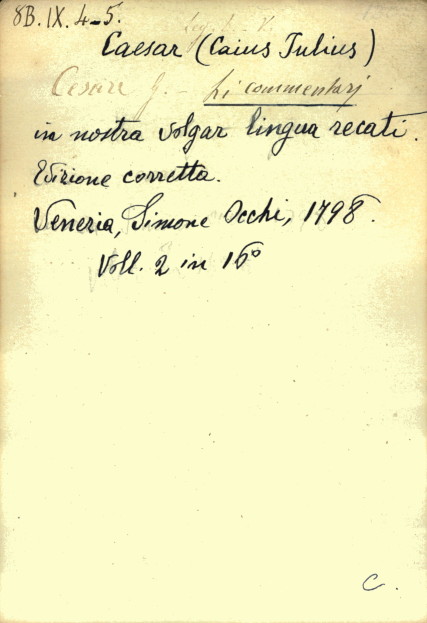 8B. IX. 4-5.
Leg. L. V.
Caesar (Caius Iulius)
Cesare J. - Li commentarj
in nostra volgar lingua recati.
Edizione corretta.
Venezia, Simone Occhi, 1798.
Voll. 2 in 16º
C.